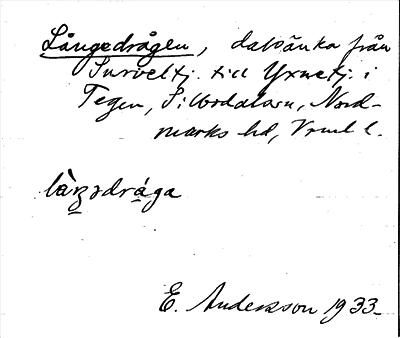 Långedrågen, dalsänka från
Surveltj. till Yxnetj. i
Tegen, Silbodalssn, Nord-
marks hd, Vrml l.
làŋ̱ədrága
E. Andersson 1933